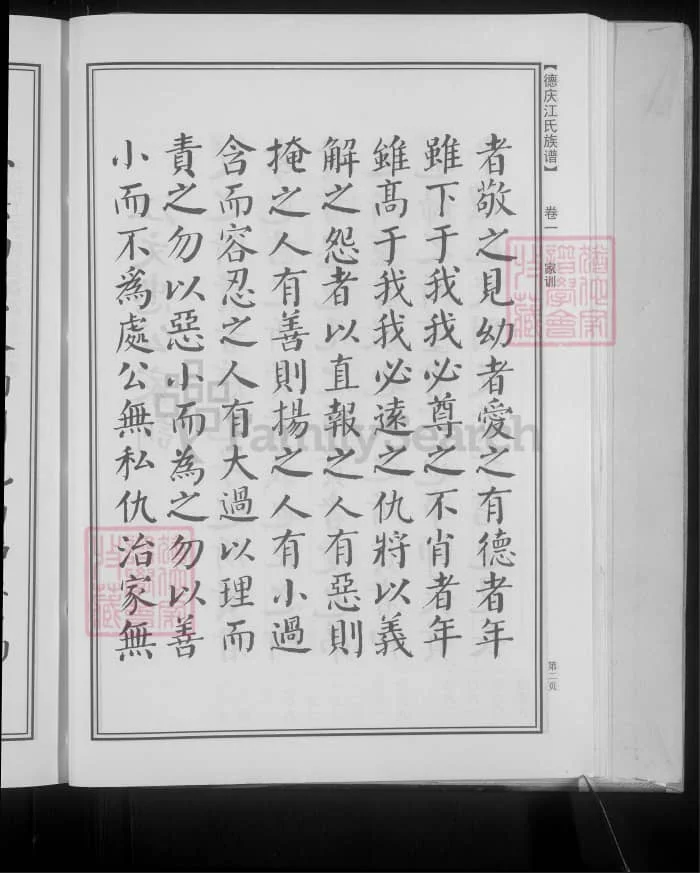 【德庆江氏族谱】 卷一 家训
者敬之見幼者愛之有德者年
雖下于我我必尊之不肖者年
雖高于我我必遠之仇將以義
解之怨者以直報之人有惡則
掩之人有善則揚之人有小過
含而容忍之人有大過以理而
責之勿以惡小而為之勿以善
小而不為處公無私仇治家無
第二页
FamilySearch